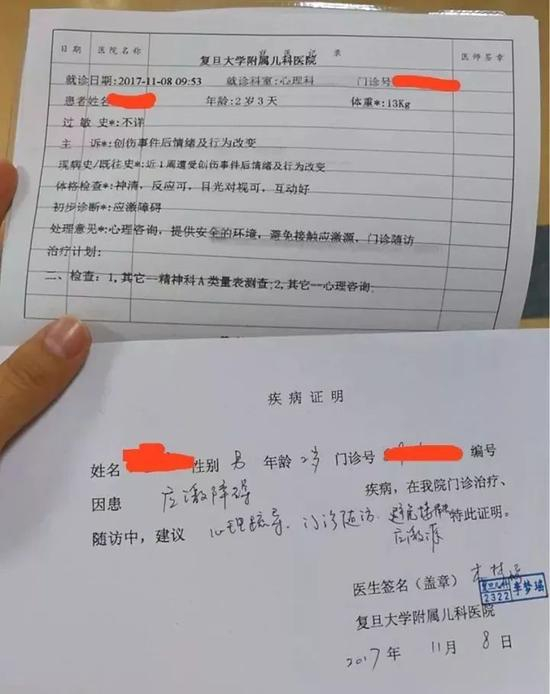 日期 医院名称 就医记录 医师签章
复旦大学附属儿科医院
就诊日期:2017-11-08 09:53 就诊科室:心理科 门诊号
患者姓名 年龄:2岁3天 体重*:13Kg
过敏史*:不详
主 诉*:创伤事件后情绪及行为改变
现病史/既往史*:近1周遭受创伤事件后情绪及行为改变
体格检查*:神清,反应可,目光对视可,互动好
初步诊断*:应激障碍
处理意见*:心理咨询,提供安全的环境,避免接触应激源、门诊随访
治疗计划:
二、检查:1,其它--精神科A类量表测查;2,其它--心理咨询;
疾病证明
姓名 性别 男 年龄 2岁 门诊号 编号
因患 应激障碍 疾病,在我院门诊治疗、
随访中,建议 心理 门诊随访、避免接触应激源 特此证明。
医生签名(盖章)
复旦儿科 2322 李梦瑶
复旦大学附属儿科医院
2017年 11月 8日